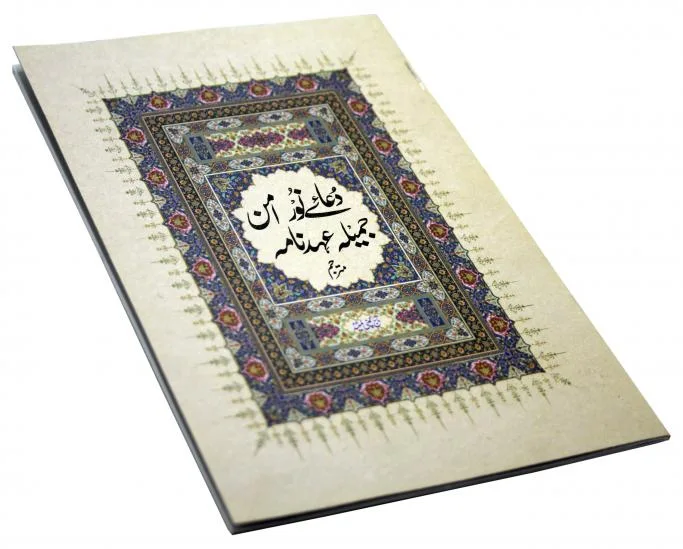 دُعائے نُورُ امن
جمیلہ عہدنامہ
مترجم